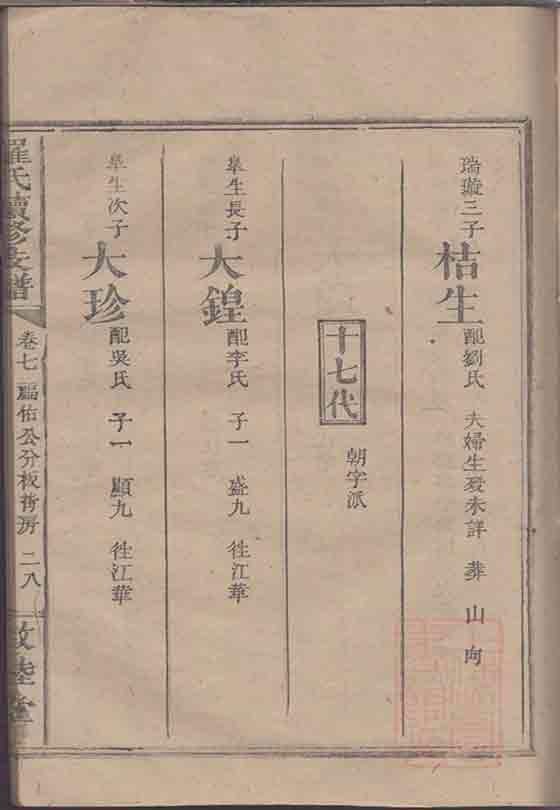 瑞璇三子 桔生 配劉氏 夫婦生歿未詳 葬 山 向
十七代 朝字派
皐生長子 大鍠 配李氏 子一 盛九 徃江華
皐生次子 大珍 配吳氏 子一 顯九 徃江華
羅氏續修支譜 卷七 福佑公分板背房 二八 敦睦堂